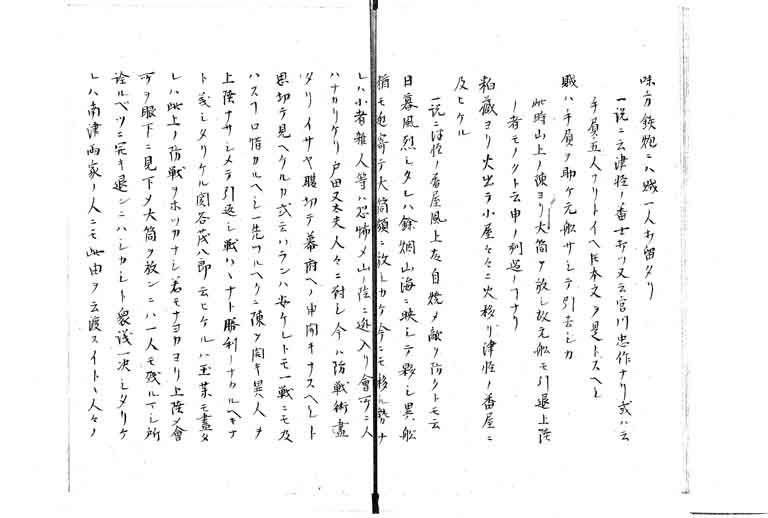 味方鉄炮ニハ賊一人打留タリ
一説ニ云津軽ノ番士打ツ又云宮川忠作ナリ或ハ云
手負五人アリトイヘ圧本文ヲ是トスヘシ
賊ハ手負ヲ助ケ元船サシテ引去シカ
此時山上ノ陳ヨリ大筒ヲ放シ故元船モ引退上陸
ノ者モノクト云申ノ刻過ノ
粕蔵ヨリ火出テ小屋々々ニ火移リ津軽ノ番屋ニ
及ヒケル
一説ニ津軽ノ番屋風上故自焼メ敵ヲ防クトモ云
日暮風烈シタレハ餘烟山海ニ映シテ夥シ異船
猶モ近寄テ大筒頻ニ放シカケ今ニモ移ル勢ナ
レハ小者雑人等ハ恐怖メ山ノ陰ニ逃入リ會所ニ人
ハナカリケリ戸田又太夫人々ニ対シ今ハ防戦術盡
タリイサヤ腹切テ幕府ヘノ申開キナスヘシト
思切テ見ヘケルカ或云ハランハ安ケレトモ一戦ニモ及
ハスフロ惜カルヘシ一先フルヘクニ陳ヲ開キ異人ヲ
上陸ナサシメテ引返シ戦ハヽナト勝利ノナカルヘキナ
ト義シタリケル関谷茂八郎云ヒケルハ玉薬モ盡タ
レハ此上ノ防戦ヲホツカナシ若モナヨカヨリ上陸メ會
所ヲ眼下ニ見下メ大筒ヲ放ンニハ一人モ残ルマシ所
詮ルベツニ穴キ退ンニハシカシト衆議一決シタリケ
レハ南津両家ノ人ニモ此由ヲ云渡スイトハ人々ノ